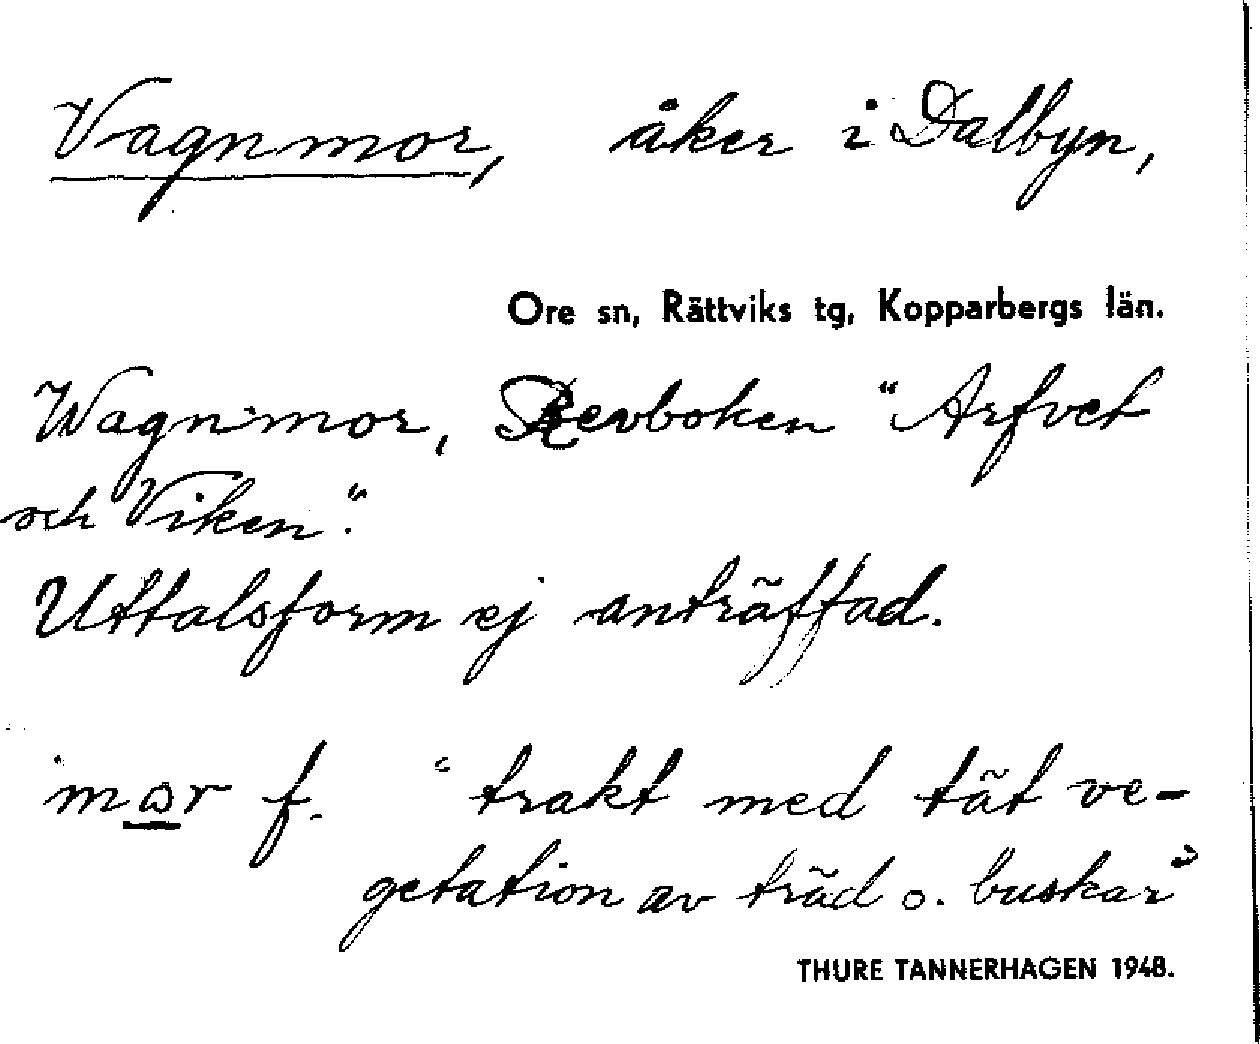 Vagnmor, åker i Dalbyn,
Ore sn, Rättviks tg, Kopparbergs län.
Wagnmor, Revboken "Arfvet
och Viken".
Uttalsform ej anträffad.
'mor f. "trakt med tät ve-
getation av träd o. buskar"
THURE TANNERHAGEN 1948.